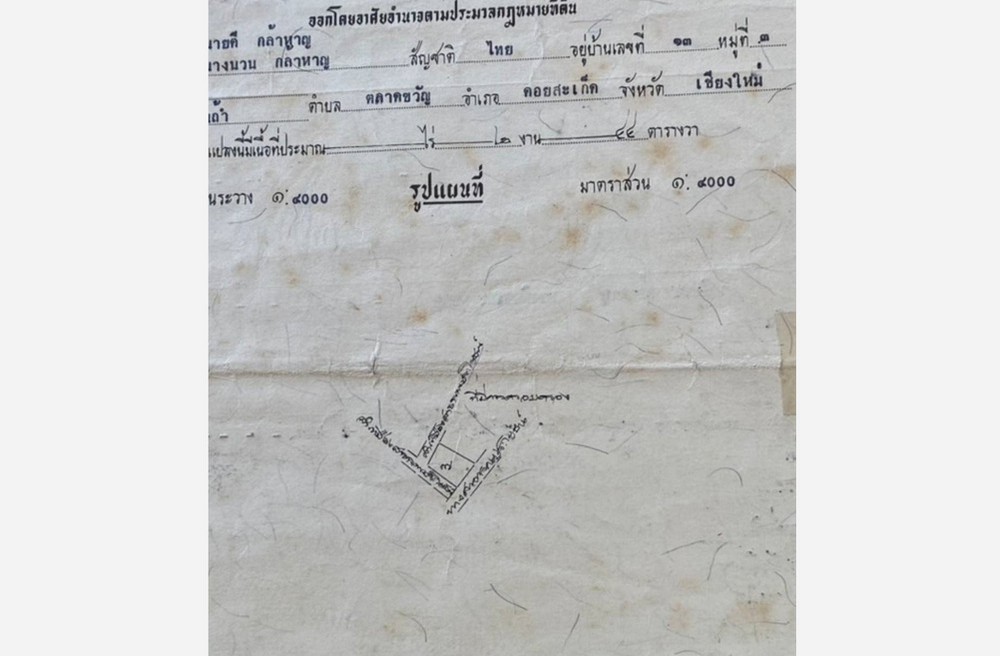 ออกโดยอาศัยอำนาจตามประมวลกฎหมายที่ดิน
นายคี กล้าหาญ
นางนวน กล้าหาญ สัญชาติ ไทย อยู่บ้านเลขที่ ๑๓ หมู่ที่ ๓
ตำบล ตลาดขวัญ อำเภอ ดอยสะเก็ด จังหวัด เชียงใหม่
แปลงนี้มีเนื้อที่ประมาณ ไร่ ๒ งาน ๔๔ ตารางวา
ระวาง ๑:๔๐๐๐ รูปแผนที่ มาตราส่วน ๑:๔๐๐๐
๓